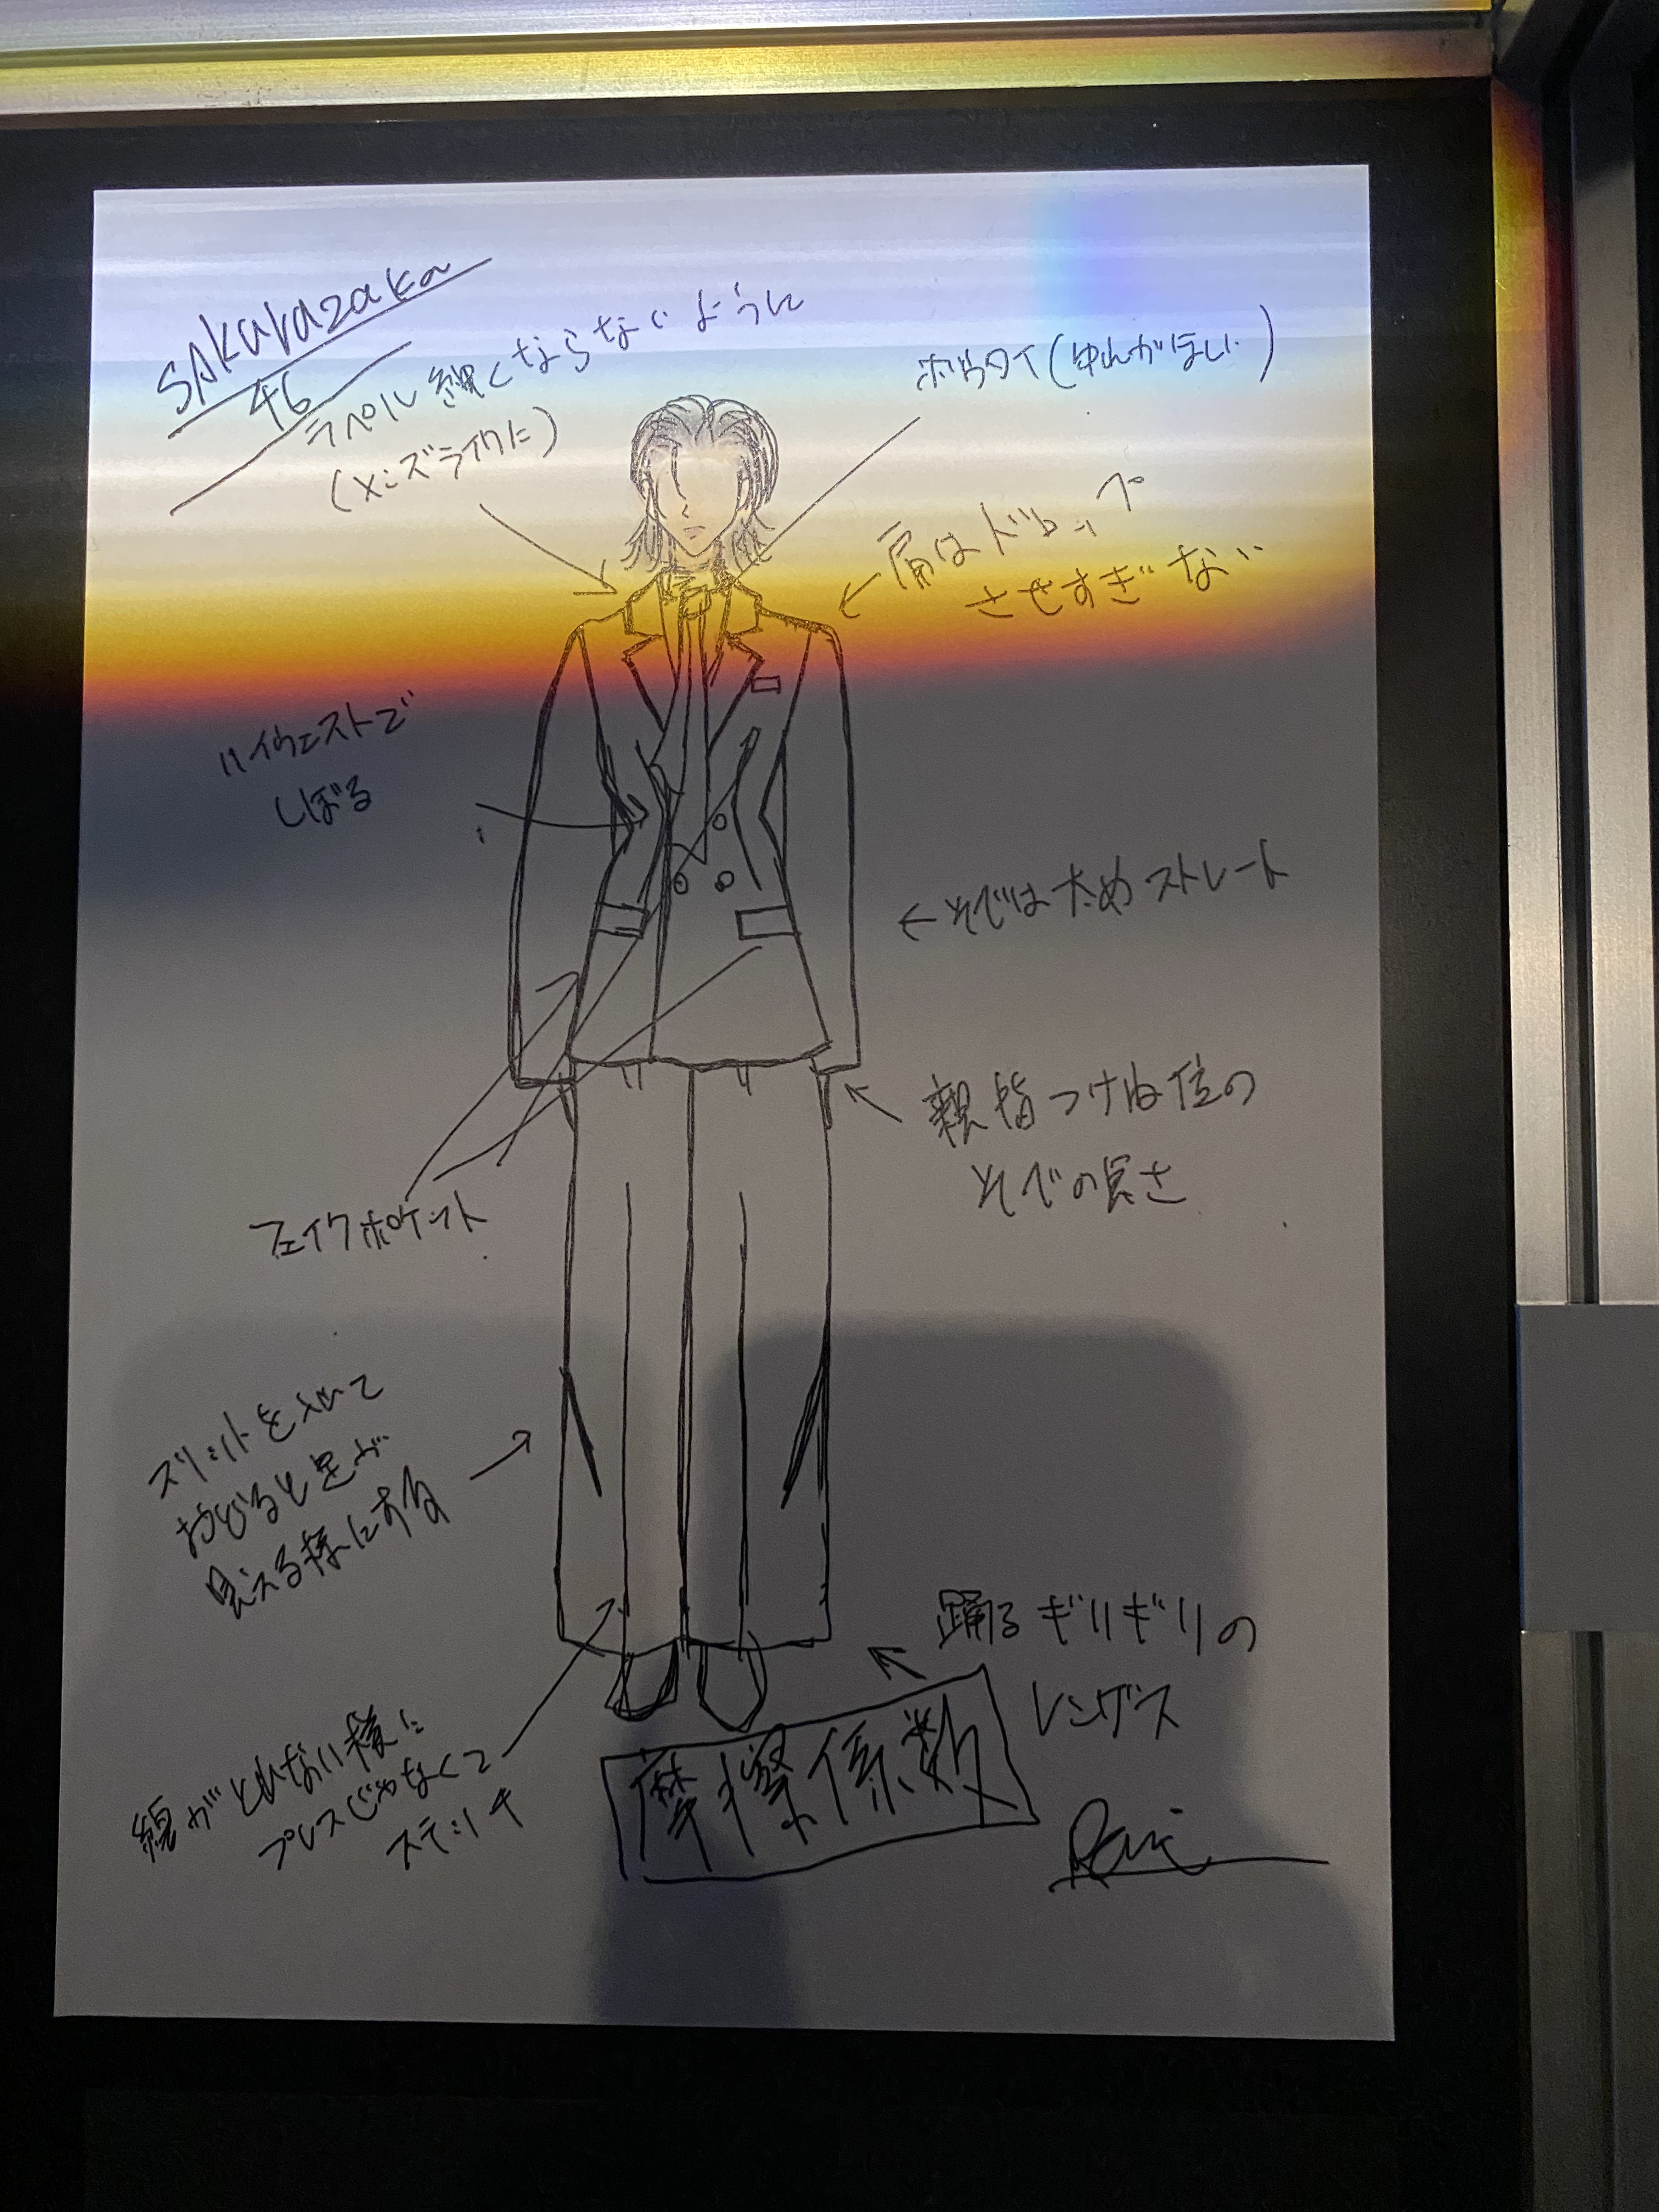 SAkurazaka
46
ラペル細くならないように
(メンズライクに)
ボウタイ(ゆれがほしい)
←肩はドロップ
させすぎない
ハイウエストで
しぼる
←そでは太めストレート
親指つけね位の
そでの長さ
フェイクポケット
スリットを入れて
おどると足が
見える様にする
踊るギリギリの
レングス
線がとれない様に
プレスじゃなくて
ステッチ
摩擦係数